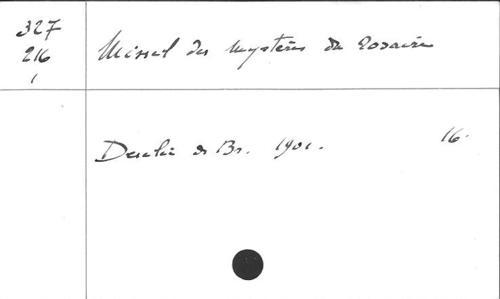 327
216
1
Missel des mystères du Rosaire
Desclée de Br. 1901. 16.